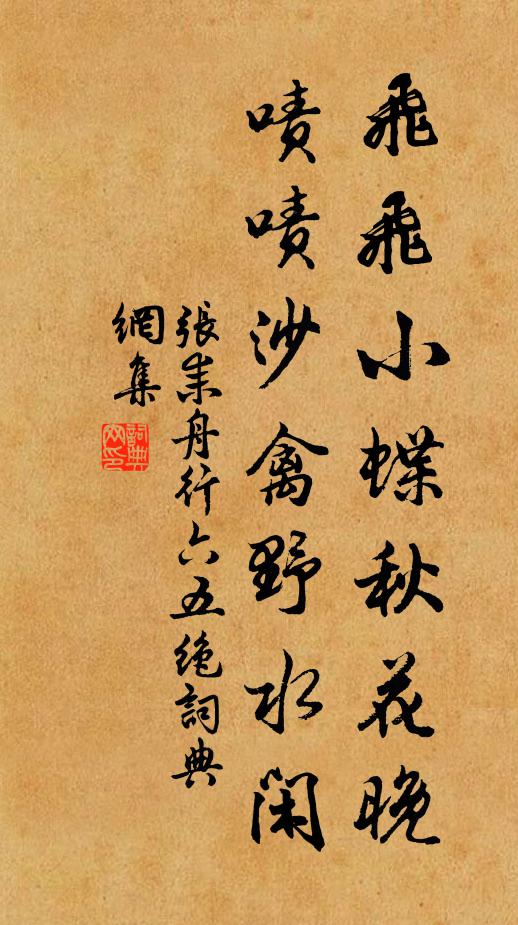 飛飛小蝶秋花晚
嘖嘖沙禽野水閑
張耒舟行六五絶詞典
網集
詞典
网印